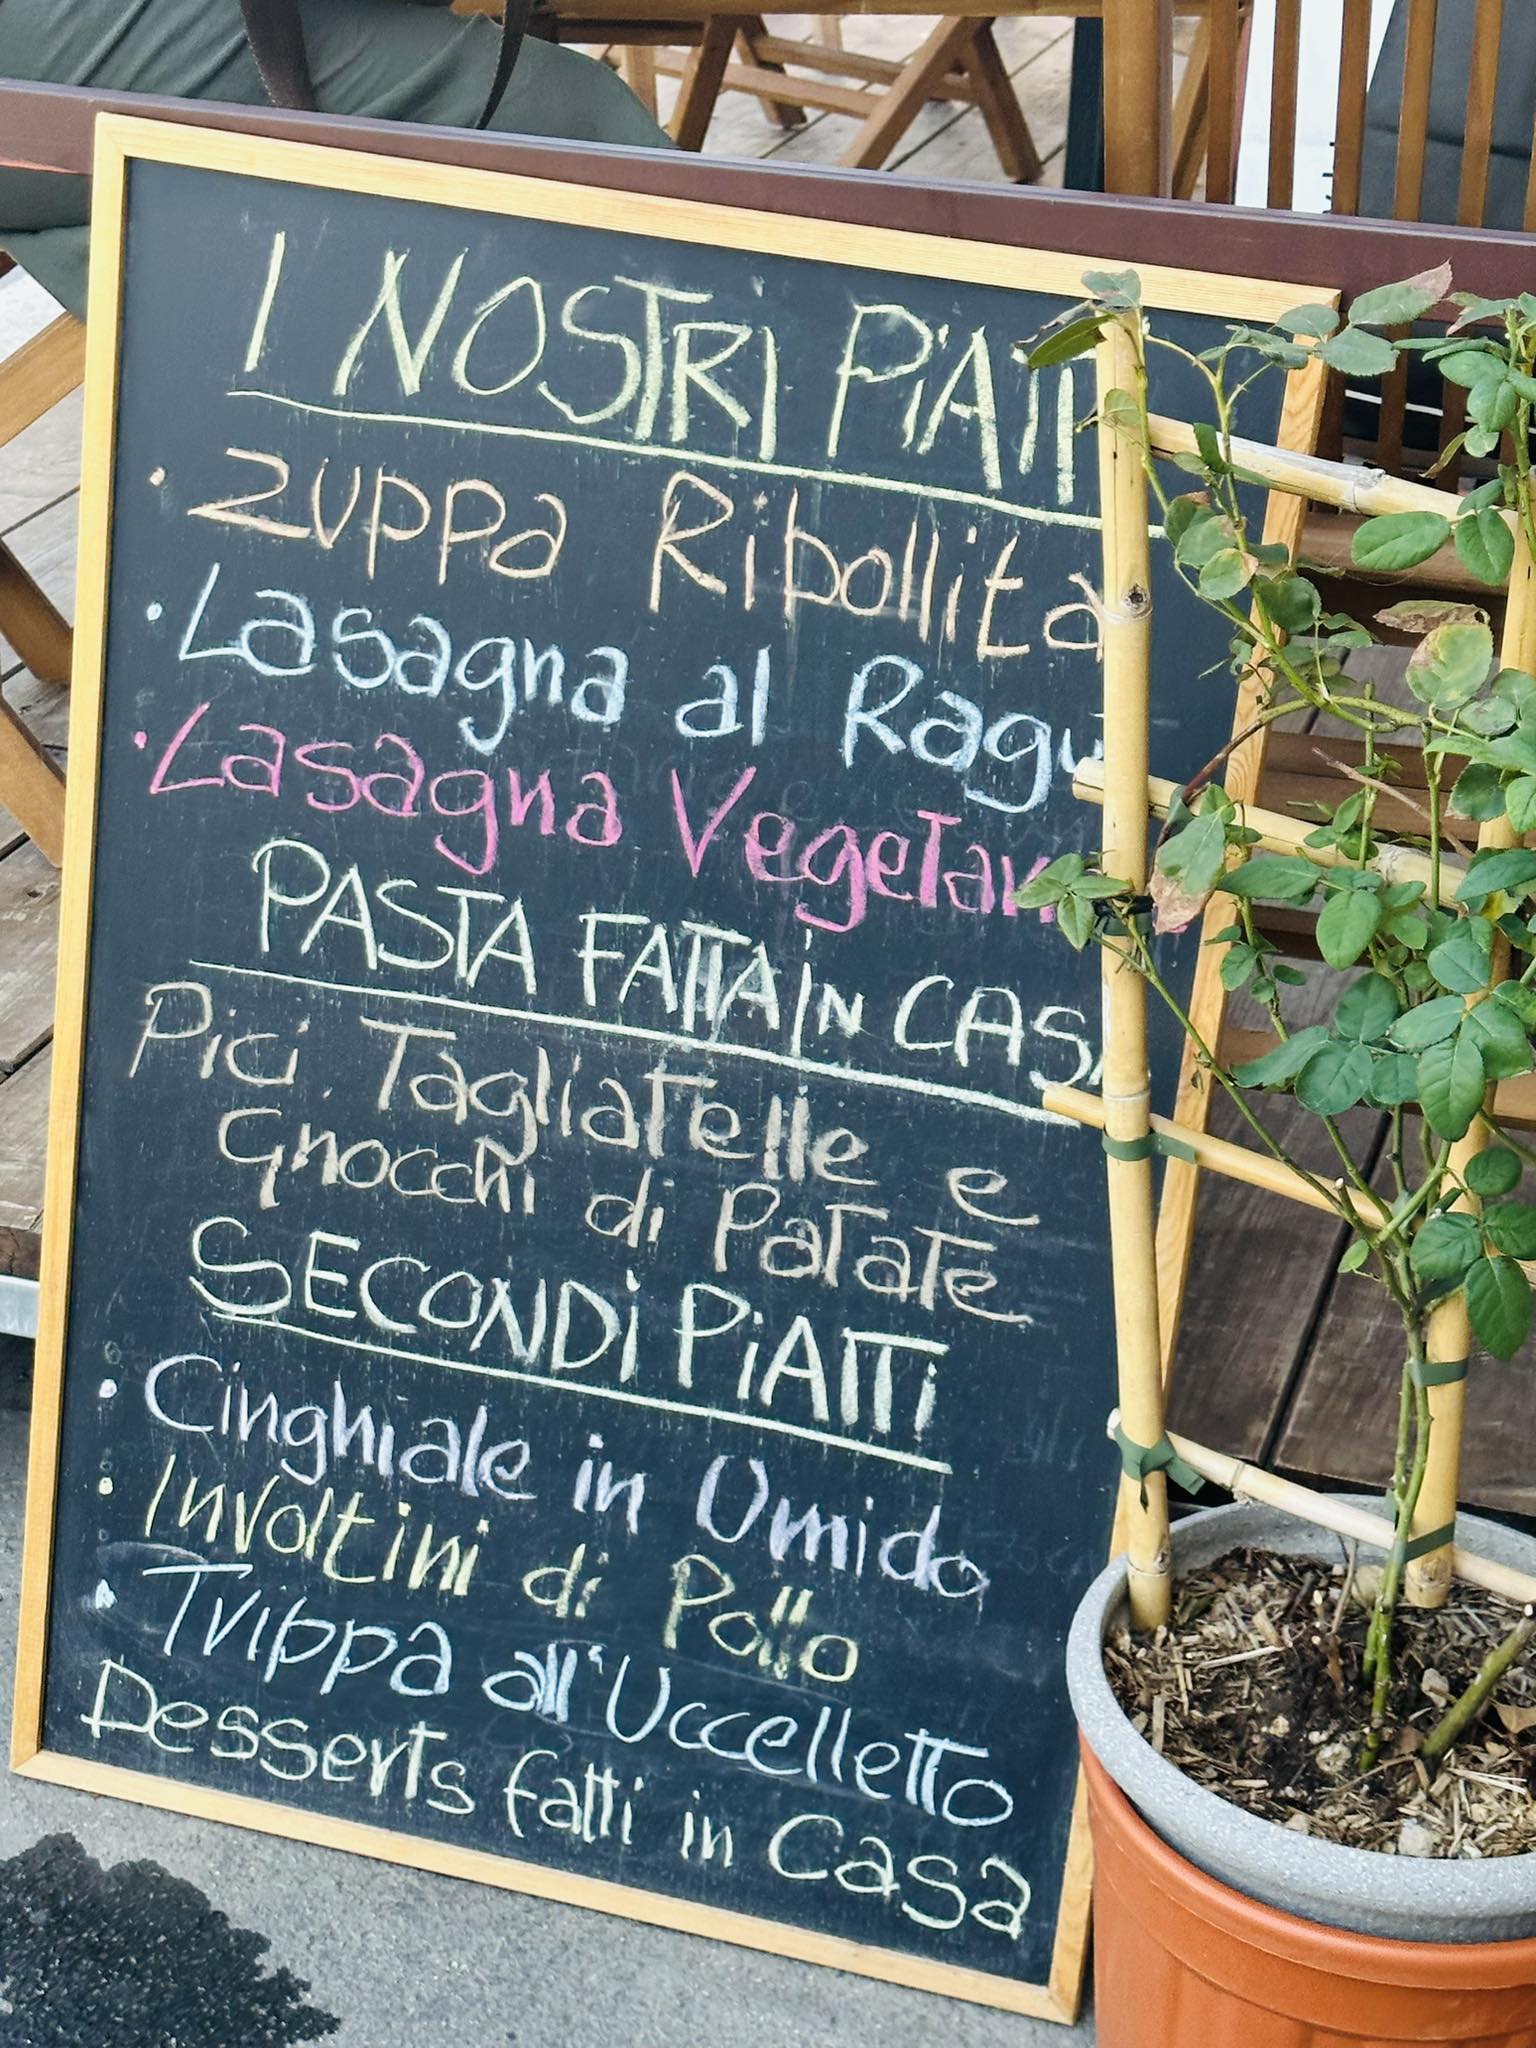 I NOSTRI PiATTI
• Zuppa Ribollita
• Lasagna al Ragù
• Lasagna Vegetar
PASTA FATTA iN CASA
Pici, Tagliatelle e
Gnocchi di Patate
SECONDi PiATTi
• Cinghiale in Umido
• Involtini di Pollo
• Trippa all'Uccelletto
Desserts fatti in Casa